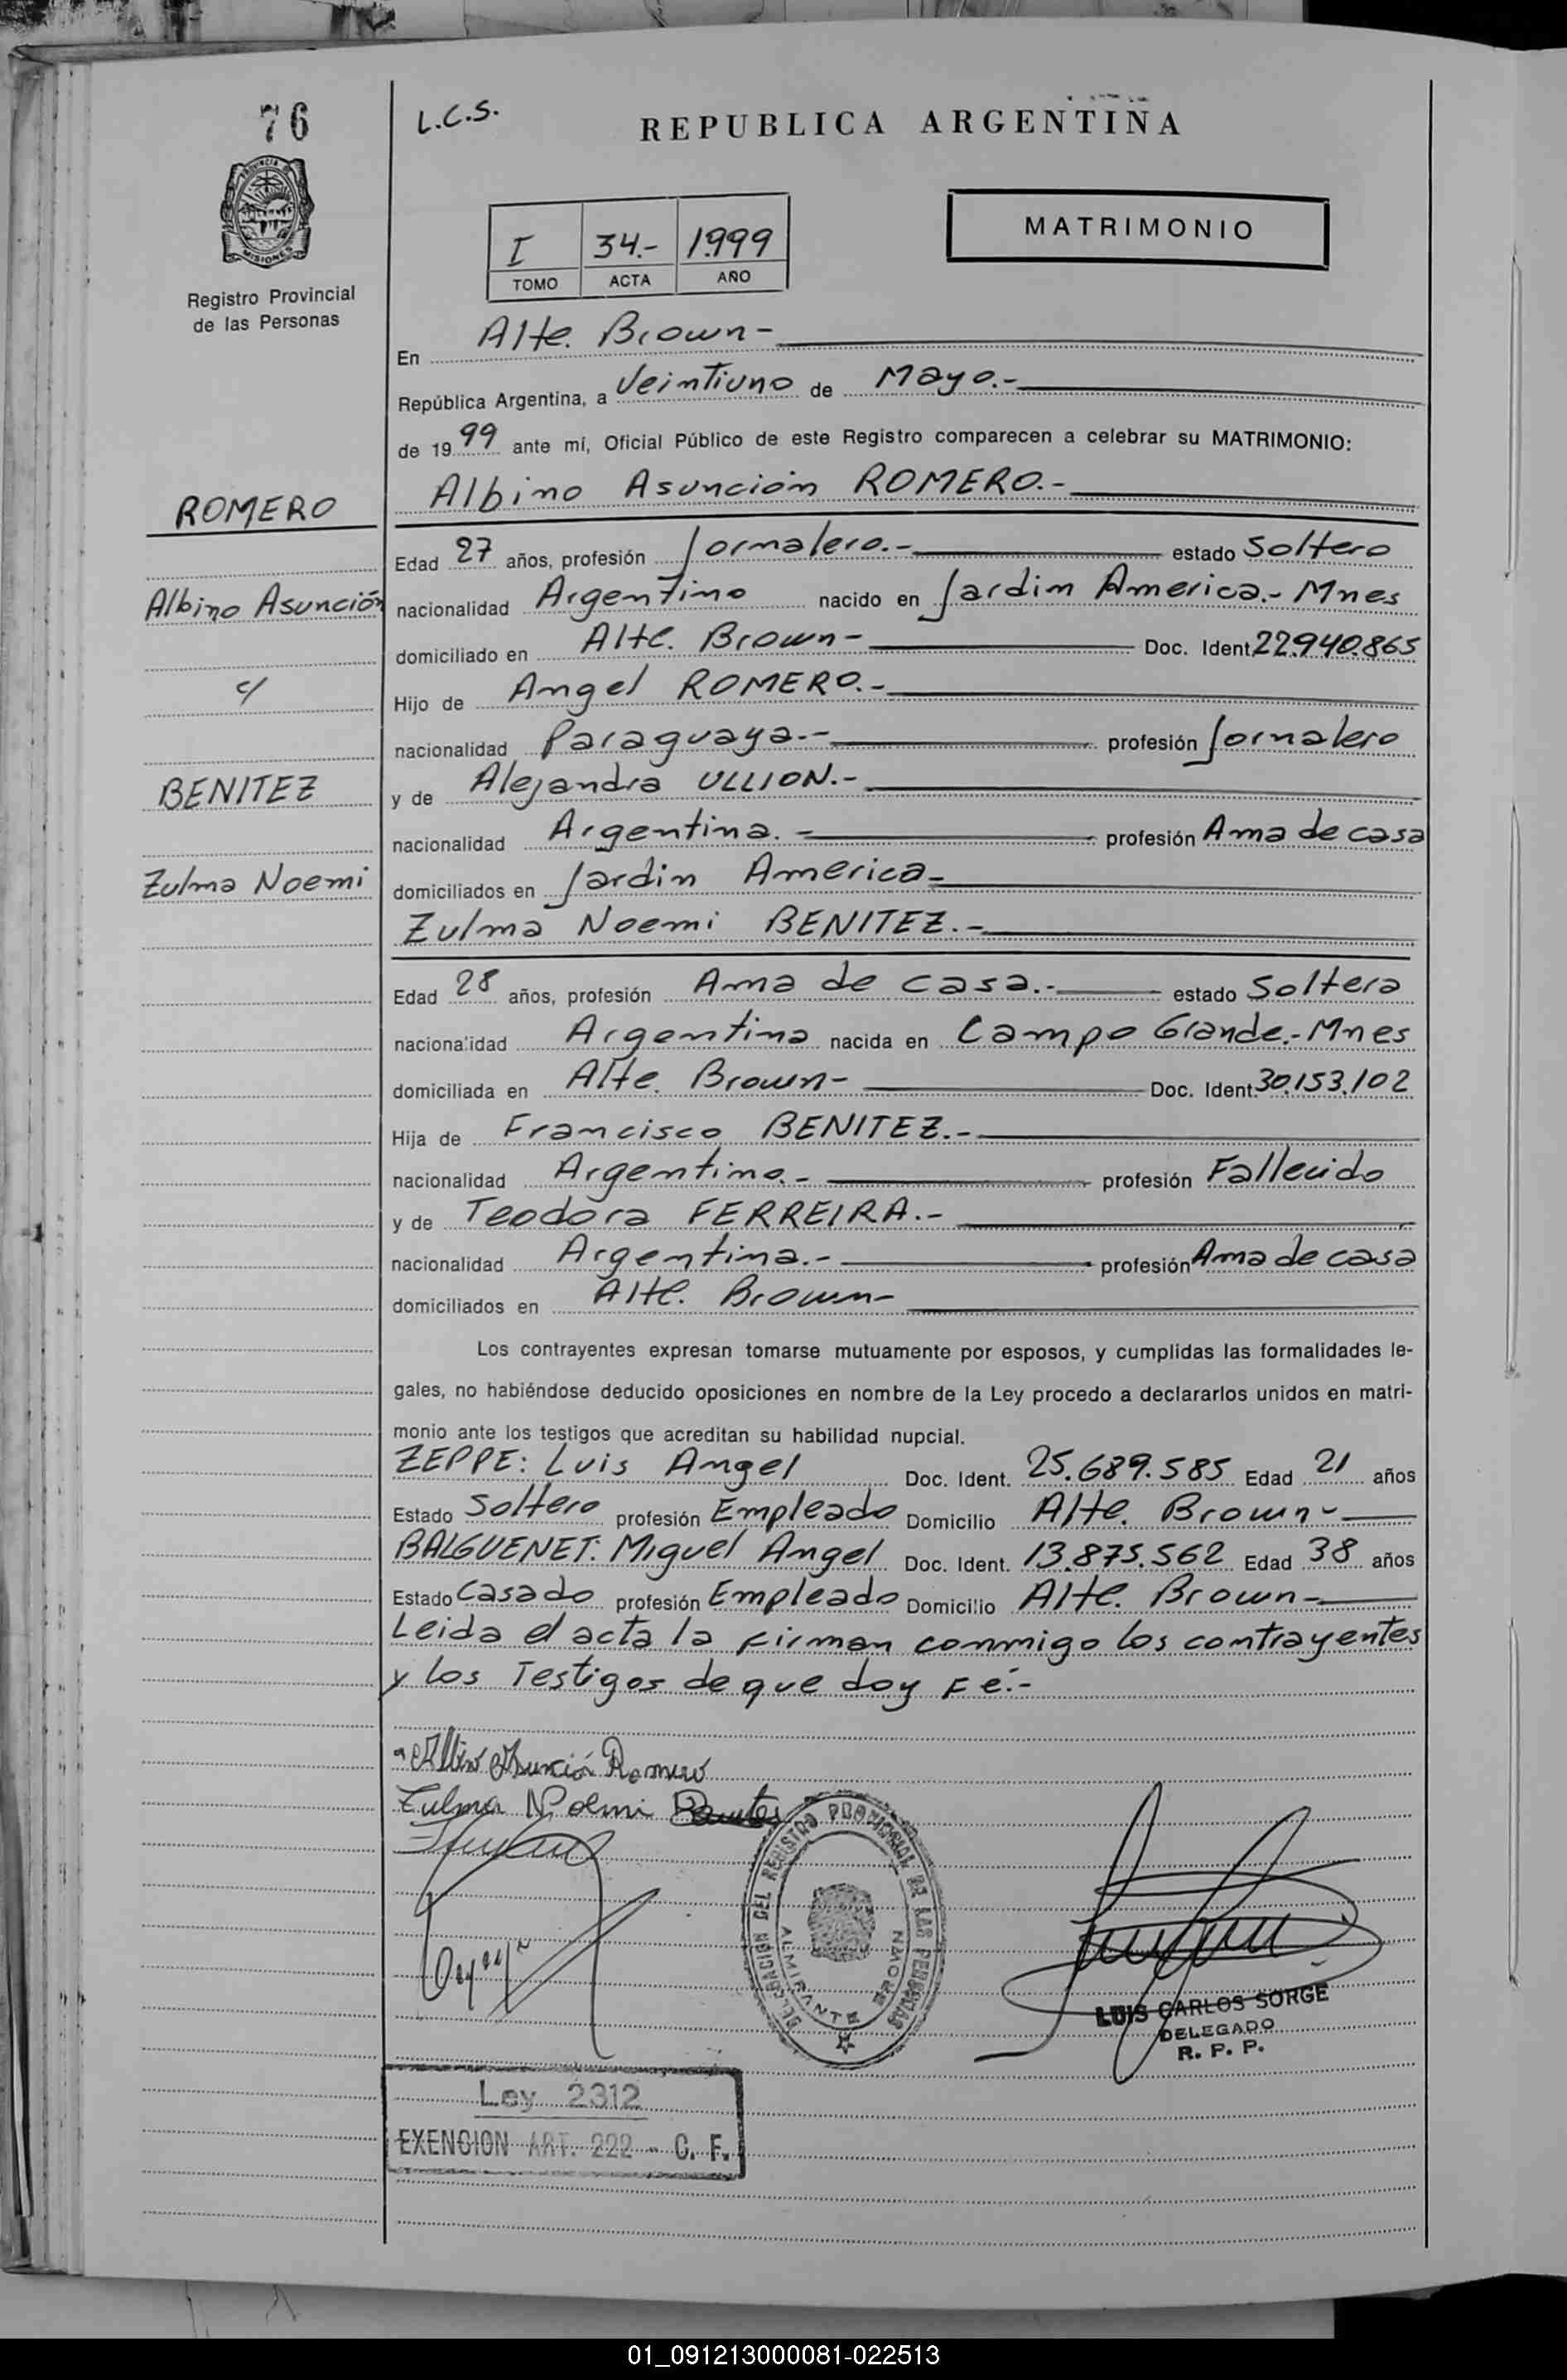 76
L.C.S.
REPUBLICA ARGENTINA
PROVINCIA DE
MISIONES
Registro Provincial
de las Personas
I 34.- 1.999
TOMO ACTA AÑO
MATRIMONIO
En Alte. Brown-
República Argentina, a Veintiuno de Mayo.-
de 19 99 ante mí, Oficial Público de este Registro comparecen a celebrar su MATRIMONIO:
ROMERO
Albino Asunción ROMERO.-
Edad 27 años, profesión Jornalero.- estado Soltero
Albino Asunción
nacionalidad Argentino nacido en Jardin America.- Mnes
domiciliado en Alte. Brown- Doc. Ident. 22.940.865
c/
Hijo de Angel ROMERO.-
nacionalidad Paraguaya.- profesión Jornalero
BENITEZ
y de Alejandra ULLION.-
nacionalidad Argentina.- profesión Ama de casa
Zulma Noemi
domiciliados en Jardin America-
Zulma Noemi BENITEZ.-
Edad 28 años, profesión Ama de casa.- estado Soltera
nacionalidad Argentina nacida en Campo Grande.- Mnes
domiciliada en Alte. Brown- Doc. Ident. 30.153.102
Hija de Francisco BENITEZ.-
nacionalidad Argentino.- profesión Fallecido
y de Teodora FERREIRA.-
nacionalidad Argentina.- profesión Ama de casa
domiciliados en Alte. Brown-
Los contrayentes expresan tomarse mutuamente por esposos, y cumplidas las formalidades le-
gales, no habiéndose deducido oposiciones en nombre de la Ley procedo a declararlos unidos en matri-
monio ante los testigos que acreditan su habilidad nupcial.
ZEPPE: Luis Angel Doc. Ident. 25.689.585 Edad 21 años
Estado Soltero profesión Empleado Domicilio Alte. Brown-
BALGUENET: Miguel Angel Doc. Ident. 13.875.562 Edad 38 años
Estado Casado profesión Empleado Domicilio Alte. Brown-
Leida el acta la firman conmigo los contrayentes
y los Testigos de que doy Fé.-
Albino Asunción Romero
Zulma Noemi
DELEGACION DEL REGISTRO PROVINCIAL DE LAS PERSONAS
ALMIRANTE BROWN
LUIS CARLOS SORGE
DELEGADO
R. P. P.
Ley 2312
EXENCION ART. 222 - C. F.
01_091213000081-022513